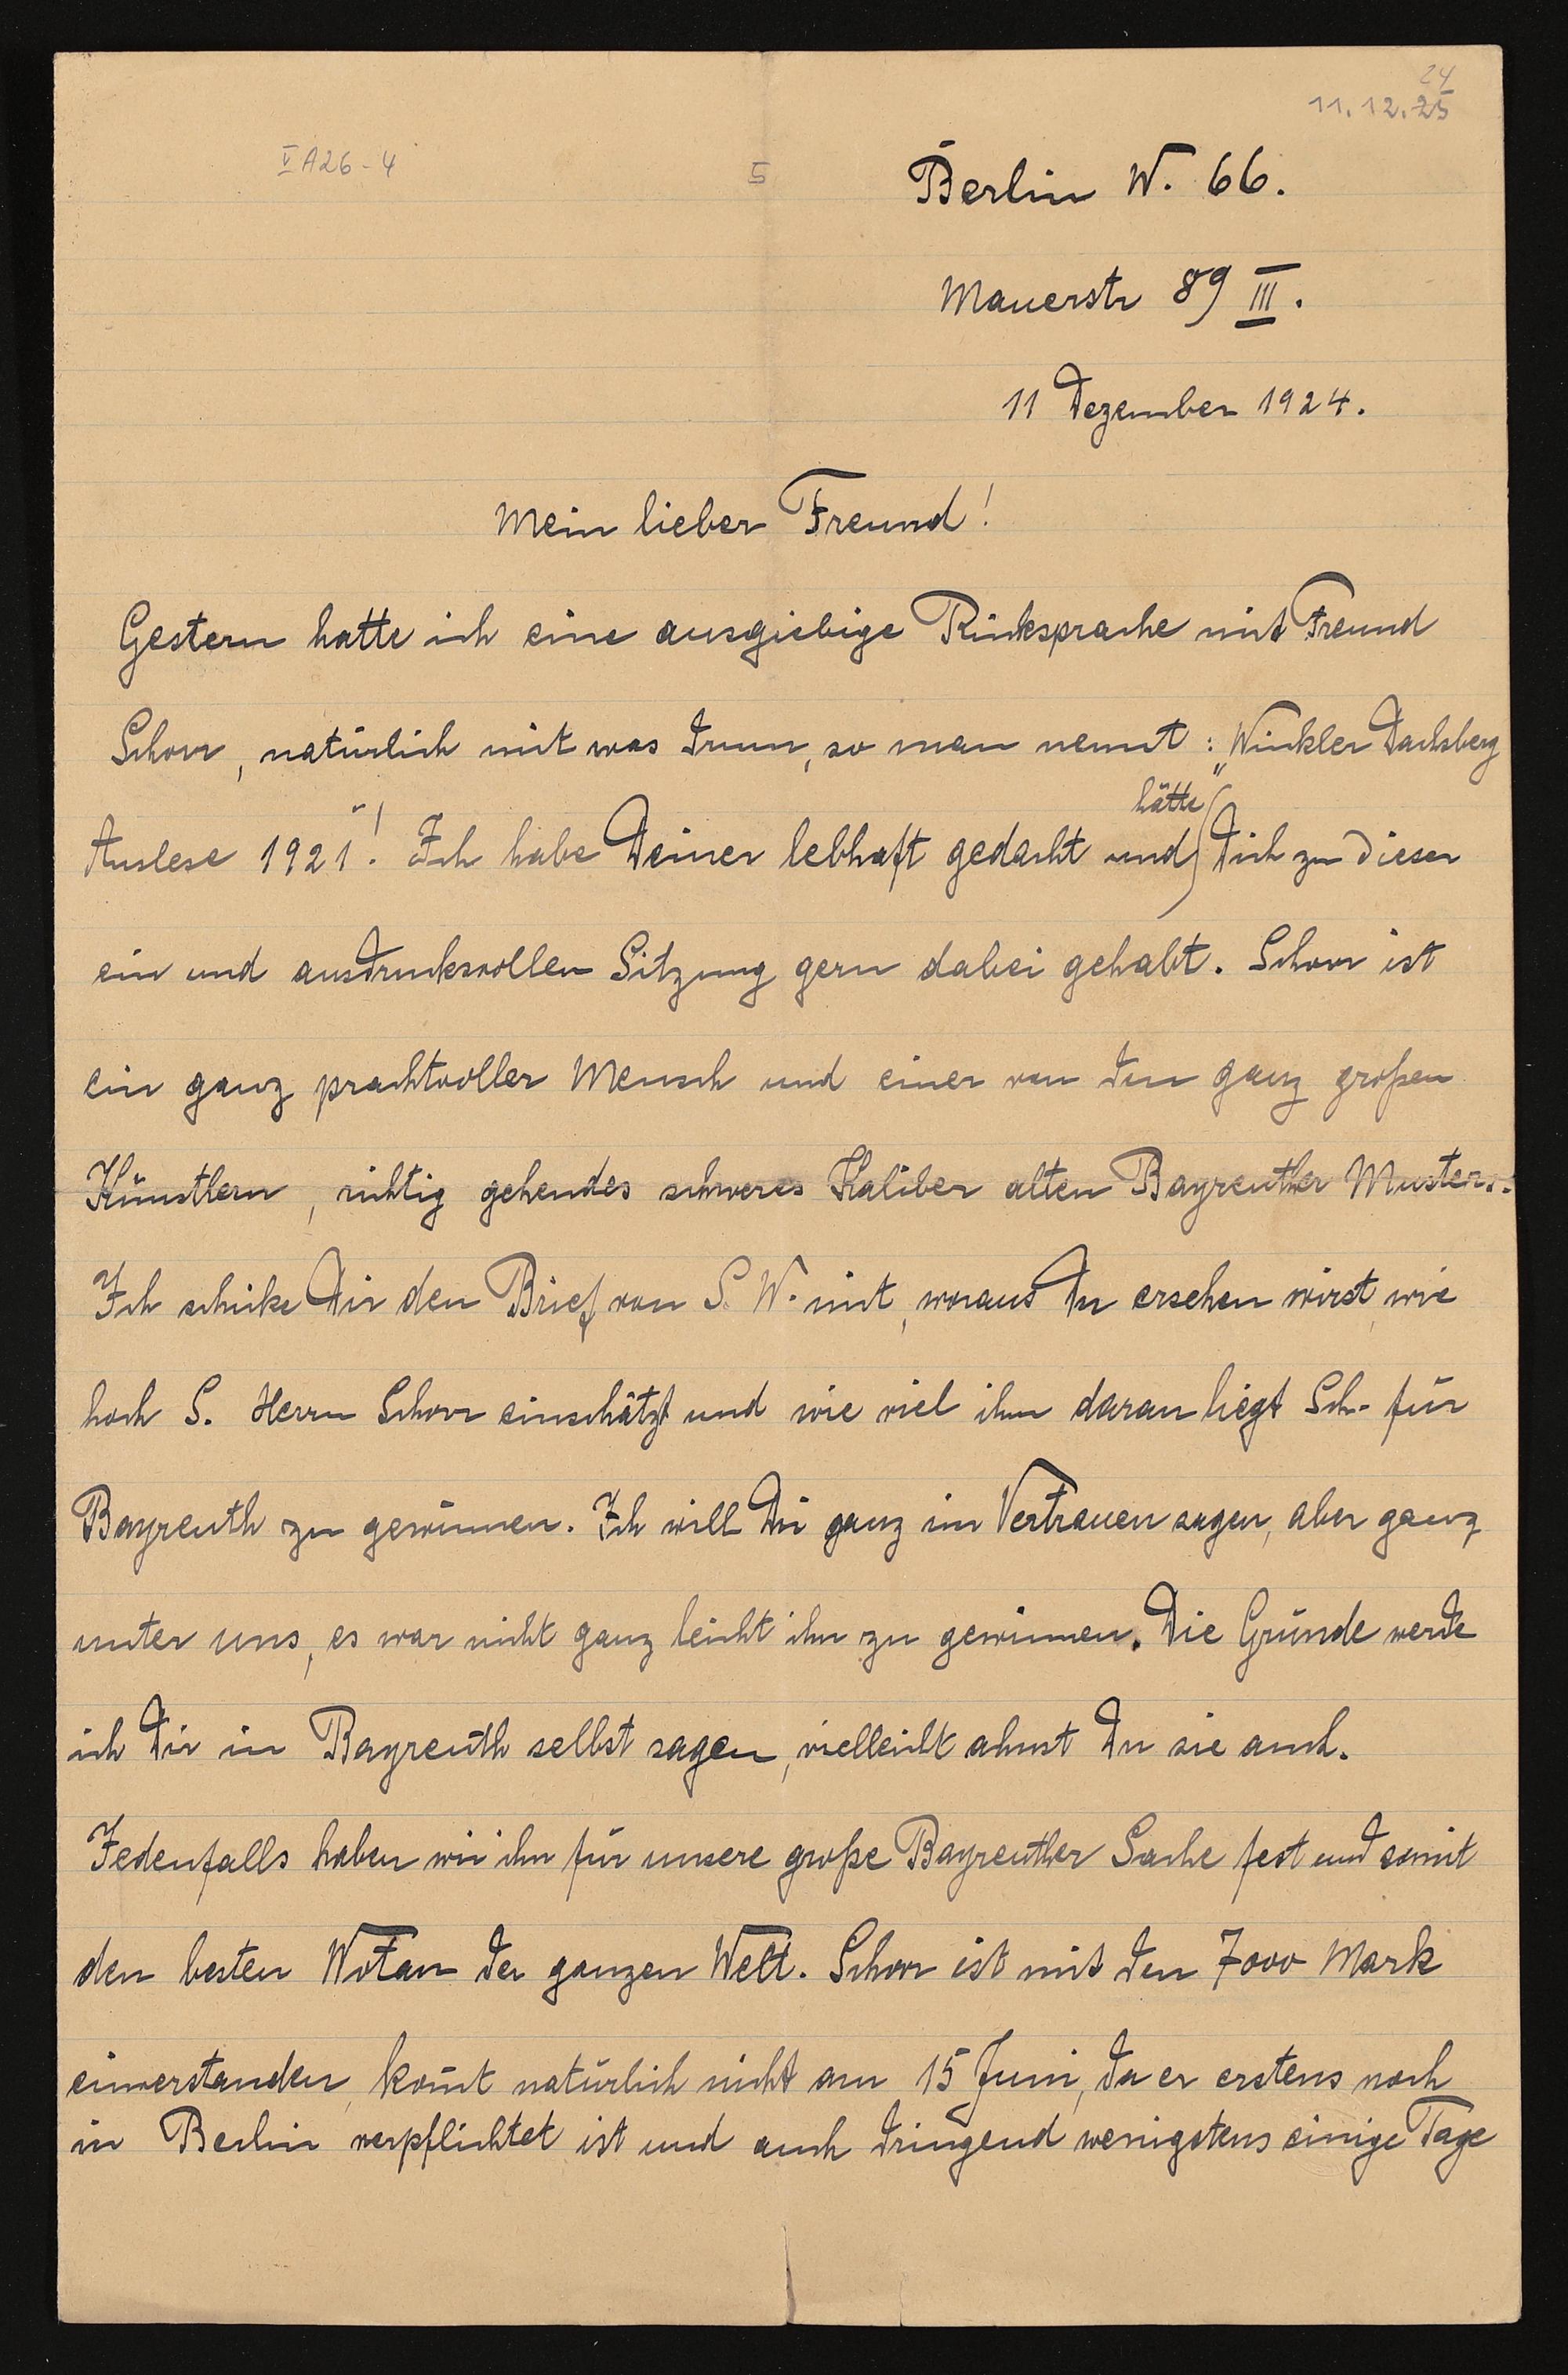 24
11.12.25
V A26-4
5
Berlin W. 66.
Mauerstr 89 III.
11 Dezember 1924.
Mein lieber Freund!
Gestern hatte ich eine ausgiebige Rücksprache mit Freund
Schorr, natürlich mit was drum, so man nennt: „Winkler Dachsberg
Auslese 1921"! Ich habe Deiner lebhaft gedacht und hätte Dich zu dieser
ein und ausdrucksvollen Sitzung gern dabei gehabt. Schorr ist
ein ganz prachtvoller Mensch und einer von den ganz großen
Künstlern, richtig gehendes schweres Kaliber alten Bayreuther Musters.
Ich schicke Dir den Brief von S. W. mit, woraus Du ersehen wirst, wie
hoch S. Herrn Schorr einschätzt und wie viel ihm daran liegt Sch. für
Bayreuth zu gewinnen. Ich will Dir ganz im Vertrauen sagen, aber ganz
unter uns, es war nicht ganz leicht ihn zu gewinnen. Die Gründe werde
ich Dir in Bayreuth selbst sagen, vielleicht ahnst Du sie auch.
Jedenfalls haben wir ihn für unsere große Bayreuther Sache fest und somit
den besten Wotan der ganzen Welt. Schorr ist mit den 7000 Mark
einverstanden, kom̄t natürlich nicht am 15 Juni, da er erstens noch
in Berlin verpflichtet ist und auch dringend wenigstens einige Tage